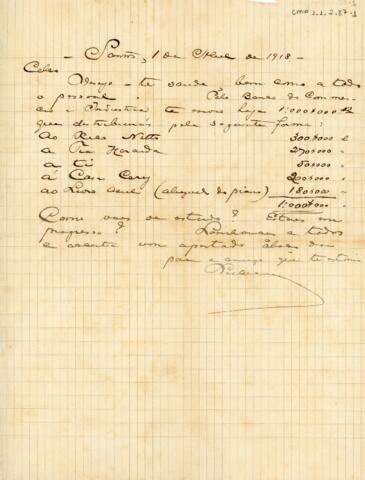 CMP 1.1.2.87-1
Santos, 1 de Abril de 1918
Celso
Desejo-te saude, bem como a todo
o pessoal. Pelo Banco do Commer-
cio e Industria te hoje 1:000$000
que distribuirás pela seguinte forma:
Ao Netto 300$000
A Tia 270$000
A ti 50$000
A Casa 200$000
ao Livro Azul (aluguel do piano) 180$000
1:000$000
Como vaes de estudo? em
progresso? a todos
e acceita um apertado do
pae e amigo que te estima